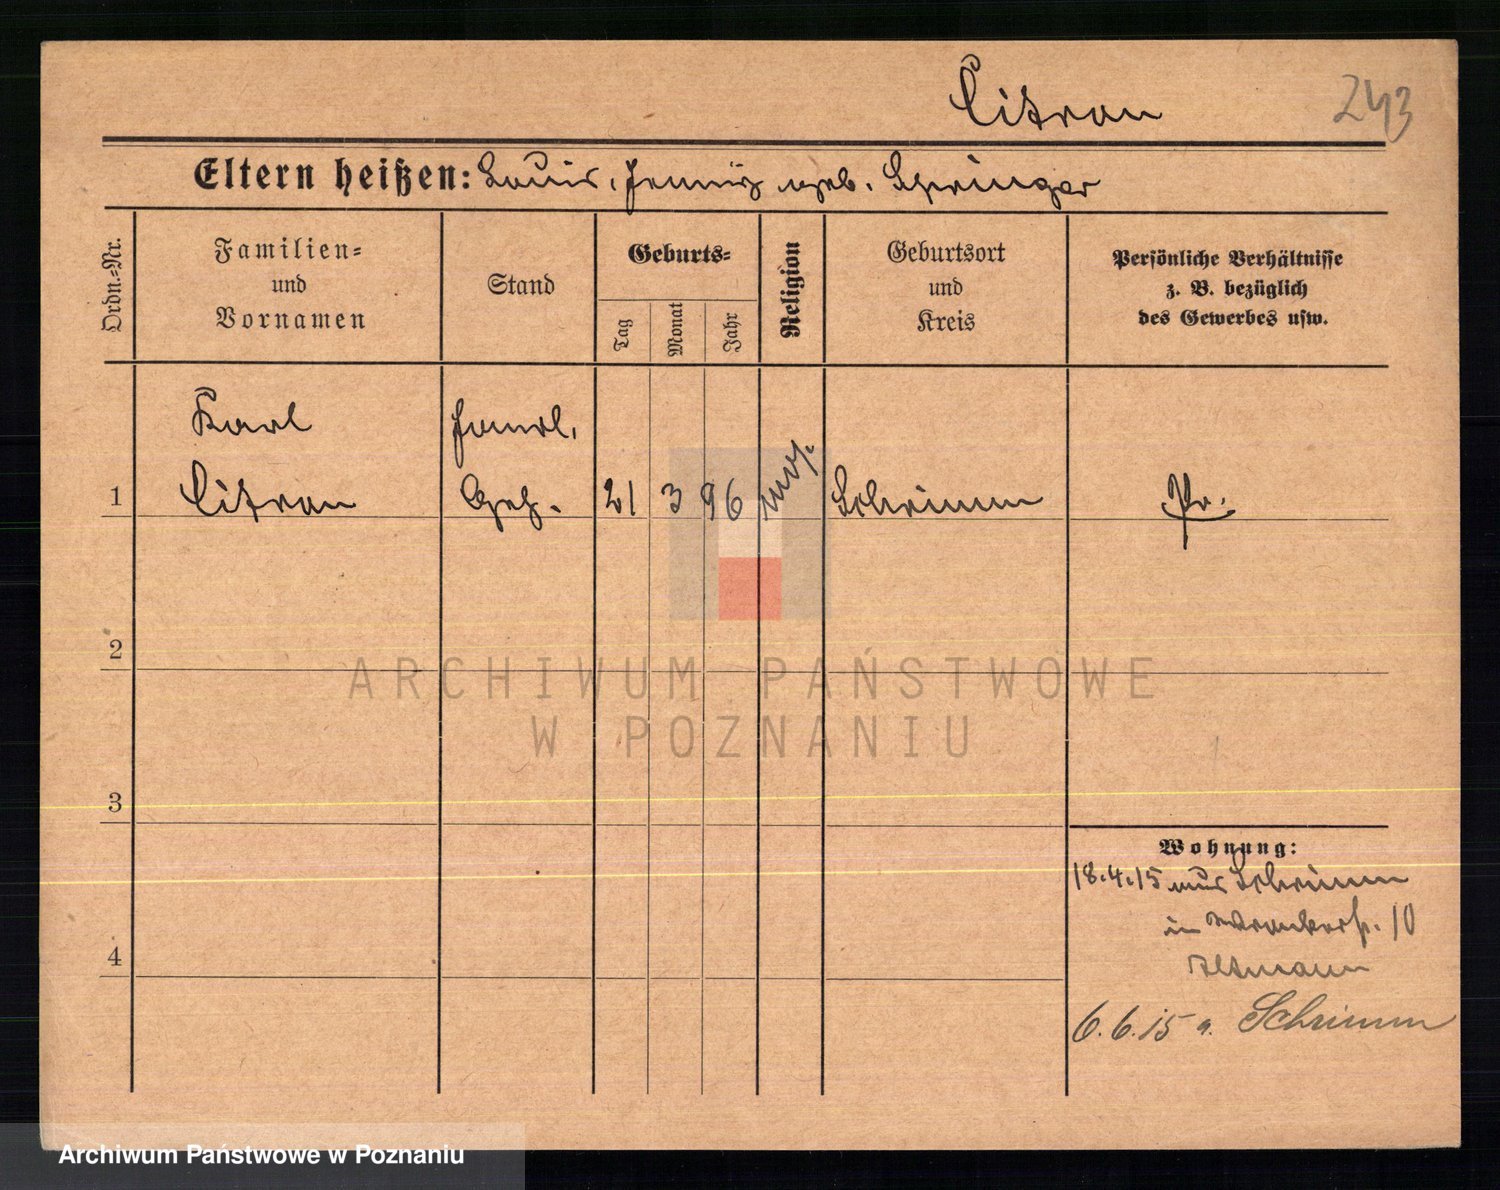 Citron 243
Eltern heißen: Louis, Jenny geb. Springer
Ordn.-Nr.
Familien-
und
Vornamen
Stand
Geburts-
Tag
Monat
Jahr
Religion
Geburtsort
und
Kreis
Persönliche Verhältnisse
z. B. bezüglich
des Gewerbes usw.
Karl
Handl.
1 Citron Geh. 21 3 96 mos. Schrimm Pr.
2
ARCHIWUM PAŃSTWOWE
W POZNANIU
3
Wohnung:
18.4.15 aus Schrimm
in 10
Altmann
4
6.6.15 n. Schrimm
Archiwum Państwowe w Poznaniu